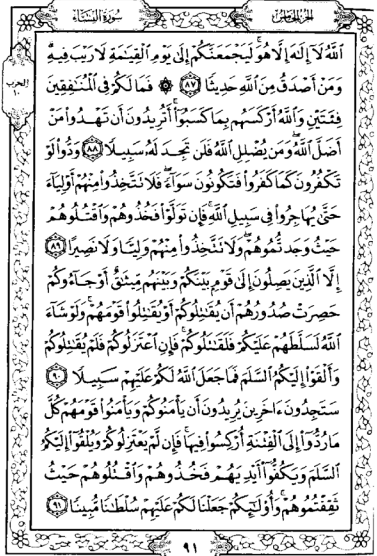 الجزء الخامس
سورة النساء
الله لا إله إلا هو ليجمعنكم إلى يوم القيمة لا ريب فيه
ومن أصدق من الله حديثا ٨٧ ۞ فما لكم في المنفقين
فئتين والله أركسهم بما كسبوا أتريدون أن تهدوا من
أضل الله ومن يضلل الله فلن تجد له سبيلا ٨٨ ودوا لو
تكفرون كما كفروا فتكونون سواء فلا تتخذوا منهم أولياء
حتى يهاجروا في سبيل الله فإن تولوا فخذوهم واقتلوهم
حيث وجدتموهم ولا تتخذوا منهم وليا ولا نصيرا ٨٩
إلا الذين يصلون إلى قوم بينكم وبينهم ميثق أو جاءوكم
حصرت صدورهم أن يقتلوكم أو يقتلوا قومهم ولو شاء
الله لسلطهم عليكم فلقتلوكم فإن اعتزلوكم فلم يقتلوكم
وألقوا إليكم السلم فما جعل الله لكم عليهم سبيلا ٩٠
ستجدون ءاخرين يريدون أن يأمنوكم ويأمنوا قومهم كل
ما ردوا إلى الفتنة أركسوا فيها فإن لم يعتزلوكم ويلقوا إليكم
السلم ويكفوا أيديهم فخذوهم واقتلوهم حيث
ثقفتموهم وأولئكم جعلنا لكم عليهم سلطنا مبينا ٩١
الحزب
٩١